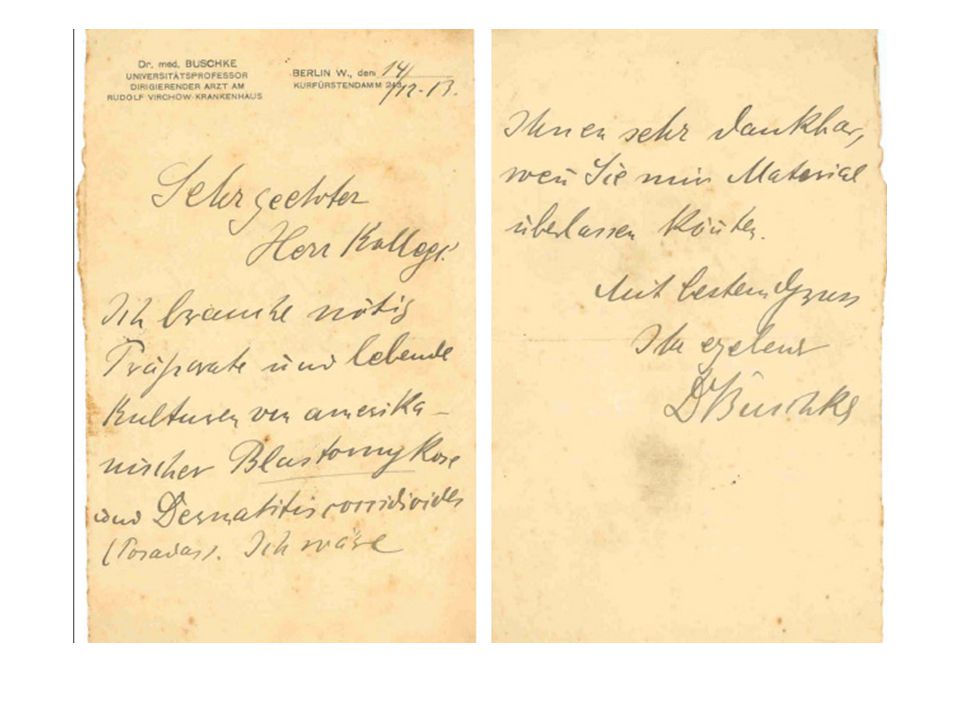 Dr. med. BUSCHKE
UNIVERSITÄTSPROFESSOR
DIRIGIERENDER ARZT AM
RUDOLF VIRCHOW-KRANKENHAUS
BERLIN W., den 14/
KURFÜRSTENDAMM 243. /12.13.
Sehr geehrter
Herr Kollege!
Ich brauche nötig
Präparate und lebende
Kulturen von amerika-
nischer Blastomykose
und Dermatitis coccidioides
(Posadas). Ich wäre
Ihnen sehr dankbar,
wen̄ Sie mir Material
überlassen kön̄ten.
Mit bestem Gruss
Ihr ergebener
Dr Buschke